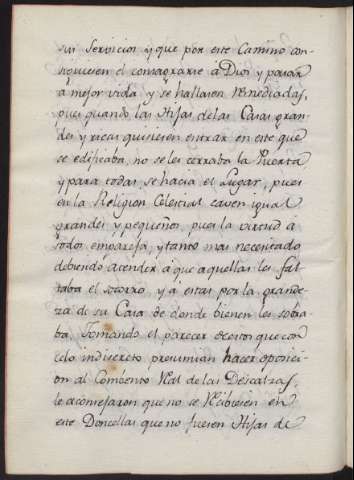 sus Servicios y que por este Camino con-
siguiesen el consagrarse á Dios y pasar
á mejor vida y se hallasen Remediadas,
pues quando las Hijas de las Casas gran-
des y ricas quisiesen entrar en este que
se edificaba, no se les cerraba la Puerta
y para todas se hacia el Lugar, pues
en la Religion Celestial caven igual
grandes y pequeños, pues la virtud á
todos empareja, y tanto mas necesitado
debiendo atender á que aquellas les fal
taba el socorro y á estas por la grande-
za de su Casa de donde bienen les sobra
ba. Tomando el parecer de otros que con
celo indiscreto presumian hacer oposici-
on al Combento Real de las Descalzas,
le aconsejaron que no se Recibiesen en
este Doncellas que no fuesen Hijas de